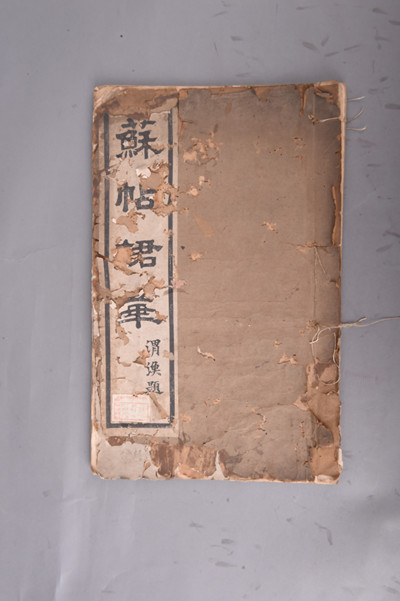 蘇帖捃華
渭漁題